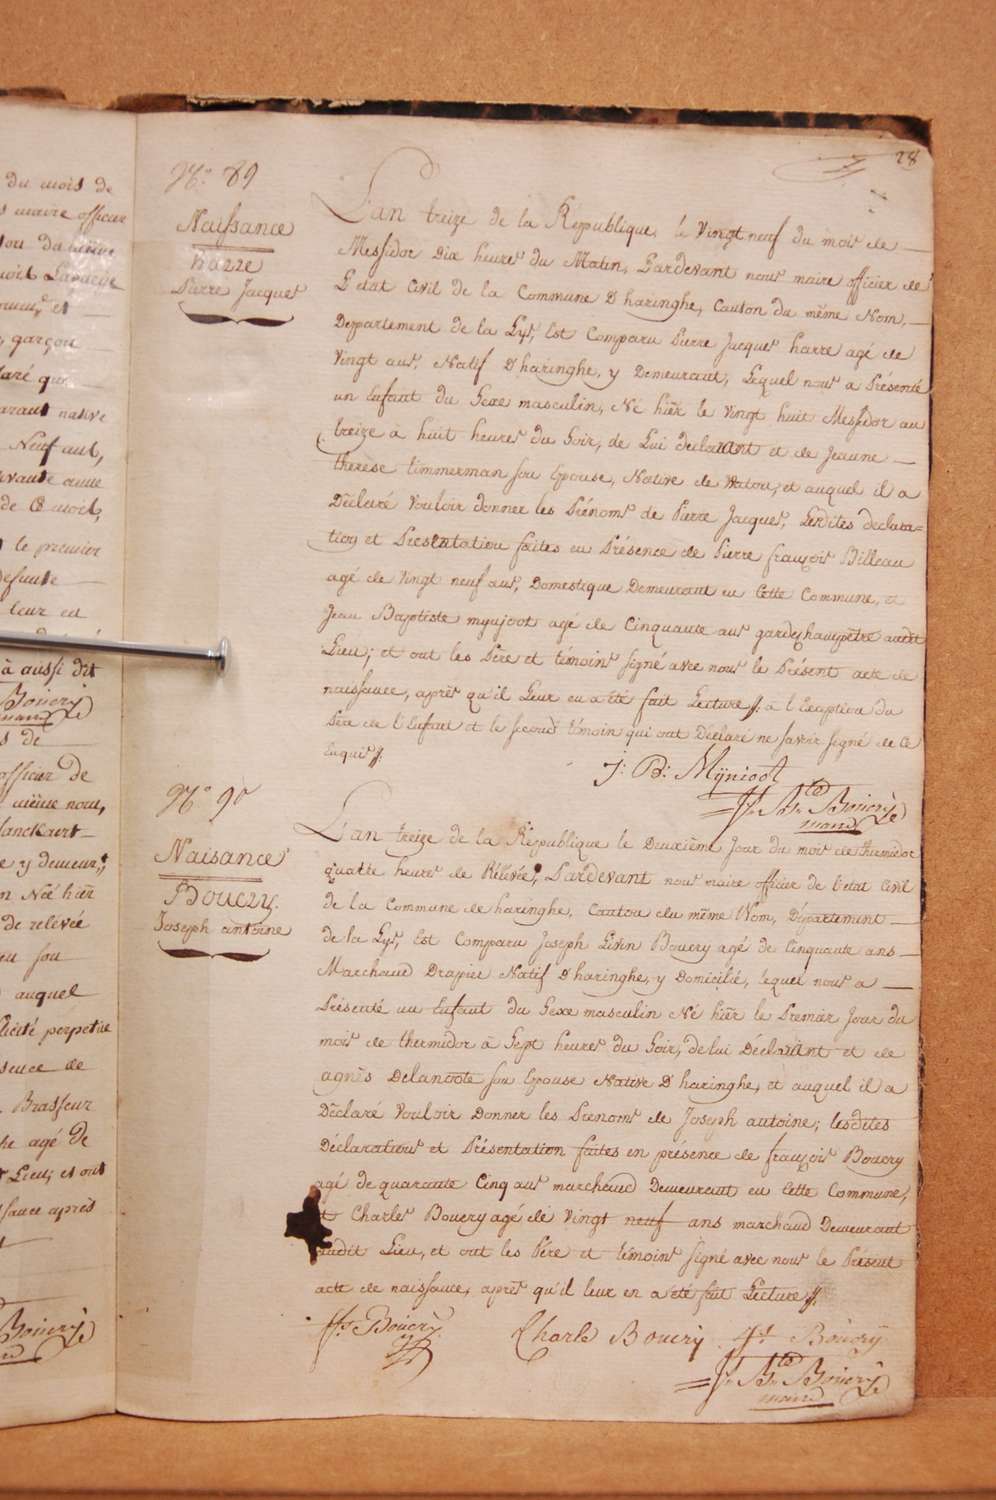 du mois de
s maire officier
Lapacije
et
garçon
laré que
native
Neuf ans,
de ce mois,
le premier
Defunte
leur en
à aussi dit
Bouery
s de
officier de
même nom,
lanckaert
e y demeurt;
n Née hier
de relevée
son
auquel
licité perpetue
sence de
Brasseur
he agé de
Lieu; et ont
ssance après
Bouery
28
No. 89
Naissance
harre
Pierre Jacques
L'an treize de la République, le Vingt neuf du mois de
Messidor Dix heures du Matin, Pardevant nous maire officier de
L'etat Civil de la Commune D'haringhe, Canton du même Nom,
Departement de la Lys, Est Comparu Pierre Jacques harre agé de
Vingt ans, Natif D'haringhe, y Demeurant, Lequel nous a Présenté
un Enfant du Sexe masculin, Né hier le Vingt huit Messidor an
treize à huit heures du Soir, de Lui declarant et de Jeanne
therese timmerman son Epouse, Native de Watou, et auquel il a
Déclaré Vouloir donner les Prénoms de Pierre Jacques, Lesdites declara=
tion et Presentation faites en Présence de Pierre françois Billeau
agé de Vingt neuf ans, Domestique Demeurant en Cette Commune, et
Jean Baptiste mynjoot agé de Cinquante ans gardechampetre audit
Lieu; et ont les Père et témoins signé avec nous le Présent acte de
naissance, après qu'il Leur en a été fait Lecture //. à l'Exception du
Père de l'Enfant et le second témoin qui ont Déclaré ne savoir signé de Ce
Enquis //.
J: B: Mijnioot
J. Bte Bouery
maire
No 90
Naisance
Bouery.
Joseph antoine
L'an treize de la République le Deuxième Jour du mois de thermidor
quatre heures de Rélévée, Pardevant nous maire officier de l'état Civil
de la Commune de haringhe, Canton du même Nom, Département
de la Lys, Est Comparu Joseph Livin Bouery agé de Cinquante ans
Marchand Drapier Natif D'haringhe, y Domicilié, lequel nous a
Présenté un Enfant du Sexe masculin Né hier le Premier Jour du
mois de thermidor à Sept heures du Soir, de lui Déclarant et de
agnès Delancote son Epouse Native D'haringhe, et auquel il a
Déclaré Vouloir Donner les Prenoms de Joseph antoine; lesdites
Déclarations et Présentation faites en présence de françois Bouery
agé de quarante Cinq ans marchand Demeurant en Cette Commune,
et Charles Bouery agé de Vingt neuf ans marchand Demeurant
audit Lieu, et ont les Père et témoins signé avec nous le Présent
acte de naissance, après qu'il leur en a été fait Lecture //.
fs. Bouery
Charle Bouery
Bouery
J. Bte Bouery
maire